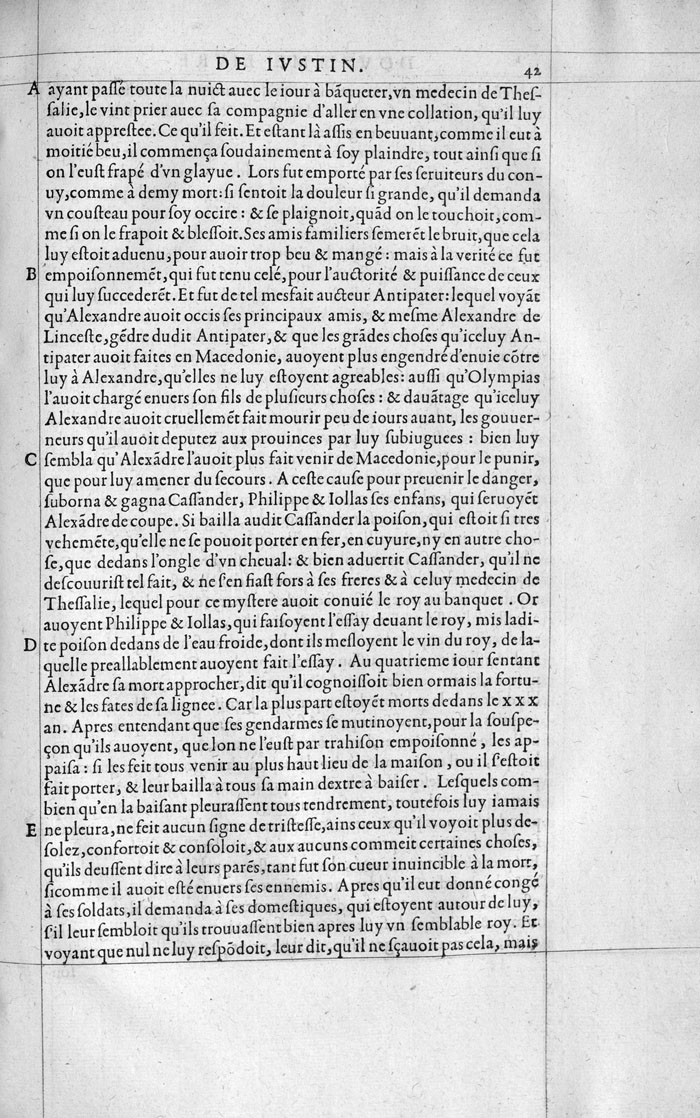 DE IVSTIN.
42
A ayant passé toute la nuict auec le iour à bãqueter, vn medecin de Thes-
salie, le vint prier auec sa compagnie d'aller en vne collation, qu'il luy
auoit apprestee. Ce qu'il feit. Et estant là assis en beuuant, comme il eut à
moitié beu, il commença soudainement à soy plaindre, tout ainsi que si
on l'eust frapé d'vn glayue. Lors fut emporté par ses seruiteurs du con-
uy, comme à demy mort: si sentoit la douleur si grande, qu'il demanda
vn cousteau pour soy occire: & se plaignoit, quãd on le touchoit, com-
me si on le frapoit & blessoit. Ses amis familiers semerẽt le bruit, que cela
luy estoit aduenu, pour auoir trop beu & mangé: mais à la verité ce fut
B empoisonnemẽt, qui fut tenu celé, pour l'auctorité & puissance de ceux
qui luy succederẽt. Et fut de tel mesfait aucteur Antipater: lequel voyãt
qu'Alexandre auoit occis ses principaux amis, & mesme Alexandre de
Linceste, gẽdre dudit Antipater, & que les grãdes choses qu'iceluy An-
tipater auoit faites en Macedonie, auoyent plus engendré d'enuie cõtre
luy à Alexandre, qu'elles ne luy estoyent agreables: aussi qu'Olympias
l'auoit chargé enuers son fils de plusieurs choses: & dauãtage qu'iceluy
Alexandre auoit cruellemẽt fait mourir peu de iours auant, les gouuer-
neurs qu'il auoit deputez aux prouinces par luy subiuguees: bien luy
C sembla qu'Alexãdre l'auoit plus fait venir de Macedonie, pour le punir,
que pour luy amener du secours. A ceste cause pour preuenir le danger,
suborna & gagna Cassander, Philippe & Iollas ses enfans, qui seruoyẽt
Alexãdre de coupe. Si bailla audit Cassander la poison, qui estoit si tres
vehemẽte, qu'elle ne se pouoit porter en fer, en cuyure, ny en autre cho-
se, que dedans l'ongle d'vn cheual: & bien aduertit Cassander, qu'il ne
descouurist tel fait, & ne s'en fiast fors à ses freres & à celuy medecin de
Thessalie, lequel pour ce mystere auoit conuié le roy au banquet. Or
auoyent Philippe & Iollas, qui faisoyent l'essay deuant le roy, mis ladi-
D te poison dedans de l'eau froide, dont ils mesloyent le vin du roy, de la-
quelle preallablement auoyent fait l'essay. Au quatrieme iour sentant
Alexãdre sa mort approcher, dit qu'il cognoissoit bien ormais la fortu-
ne & les fates de sa lignee. Car la plus part estoyẽt morts dedans le xxx
an. Apres entendant que ses gendarmes se mutinoyent, pour la souspe-
çon qu'ils auoyent, que lon ne l'eust par trahison empoisonné, les ap-
paisa: si les feit tous venir au plus haut lieu de la maison, ou il s'estoit
fait porter, & leur bailla à tous sa main dextre à baiser. Lesquels com-
bien qu'en la baisant pleurassent tous tendrement, toutefois luy iamais
E ne pleura, ne feit aucun signe de tristesse, ains ceux qu'il voyoit plus de-
solez, confortoit & consoloit, & aux aucuns commeit certaines choses,
qu'ils deussent dire à leurs parẽs, tant fut son cueur inuincible à la mort,
sicomme il auoit esté enuers ses ennemis. Apres qu'il eut donné congé
à ses soldats, il demanda à ses domestiques, qui estoyent autour de luy,
s'il leur sembloit qu'ils trouuassent bien apres luy vn semblable roy. Et
voyant que nul ne luy respõdoit, leur dit, qu'il ne sçauoit pas cela, mais